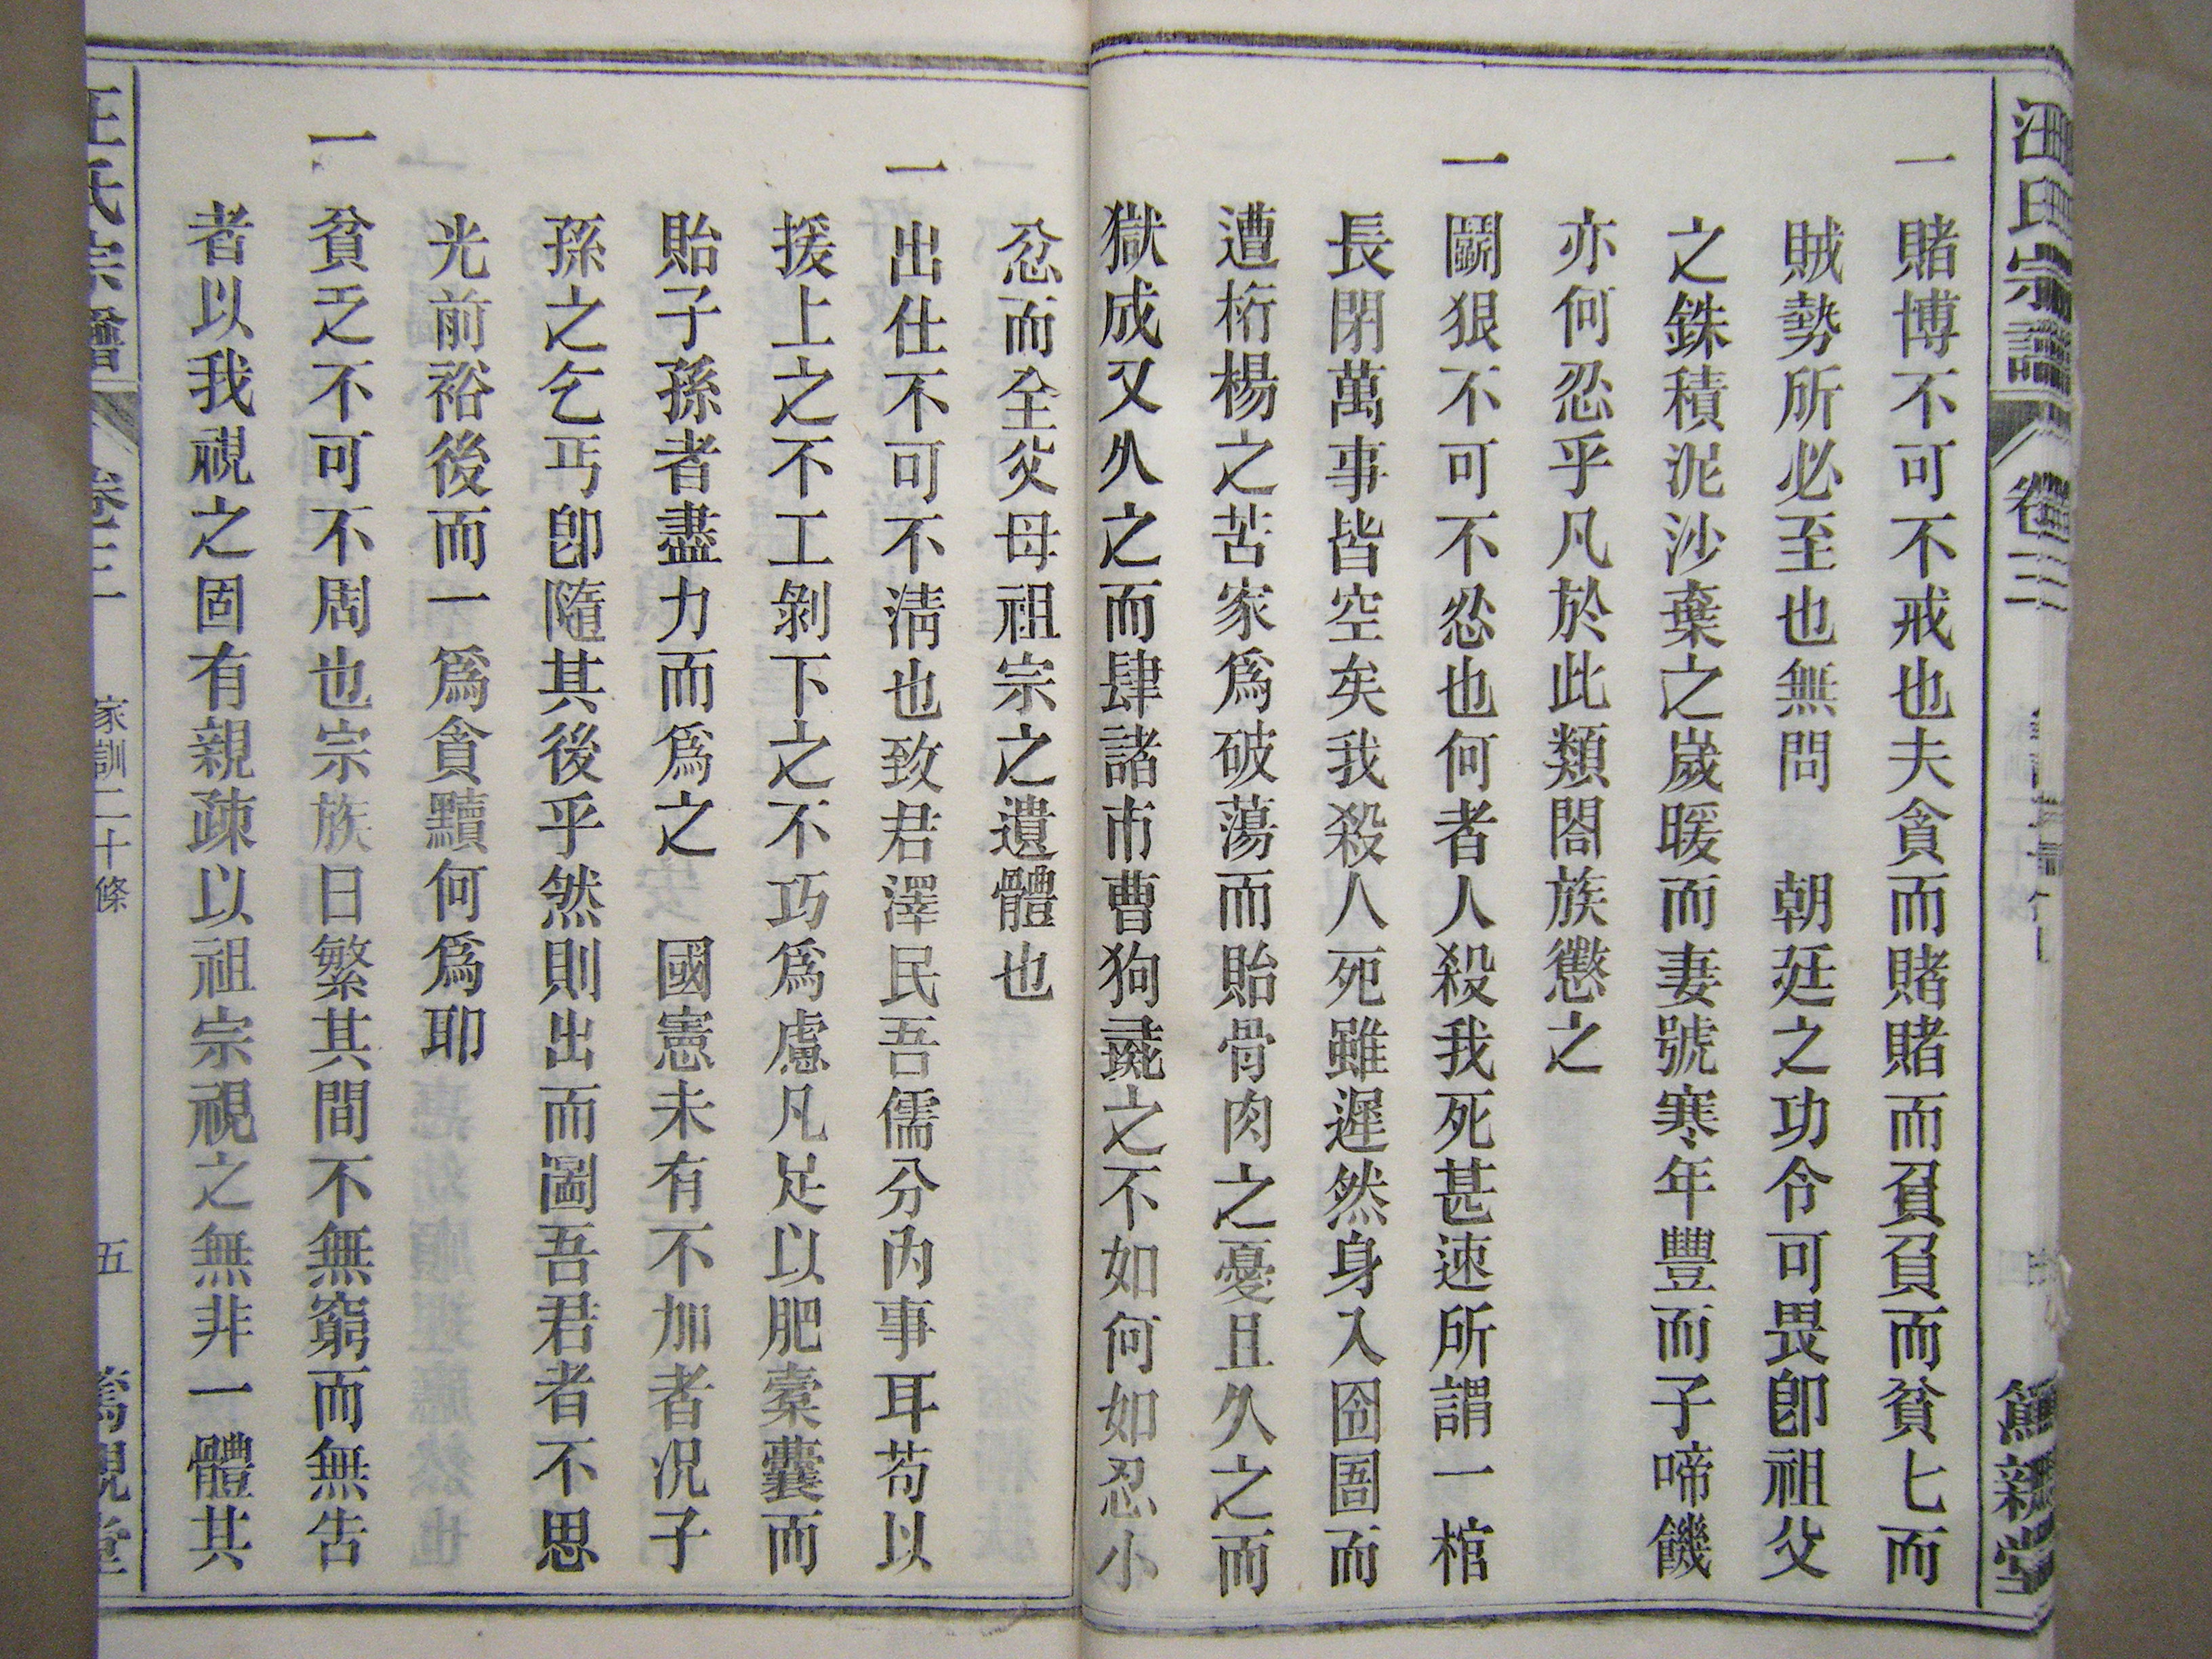 汪氏宗譜 卷三
一賭博不可不戒也夫貪而賭賭而負負而貧匕而
賊勢所必至也無問 朝廷之功令可畏卽祖父
之銖積泥沙棄之歲暖而妻號寒年豐而子啼饑
亦何忍乎凡於此類閤族懲之
一鬭狠不可不忍也何者人殺我死甚速所謂一棺
長閉萬事皆空矣我殺人死雖遲然身入囹圄而
遭桁楊之苦家爲破蕩而貽骨肉之憂且久之而
獄成又久之而肆諸市曹狗彘之不如何如忍小
忿而全父母祖宗之遺體也
一出仕不可不淸也致君澤民吾儒分內事耳苟以
援上之不工剝下之不巧爲慮凡足以肥橐囊而
貽子孫者盡力而爲之 國憲未有不加者况子
孫之乞丐卽隨其後乎然則出而圖吾君者不思
光前裕後而一爲貪黷何爲耶
一貧乏不可不周也宗族日繁其間不無窮而無告
者以我視之固有親疎以祖宗視之無非一體其
汪氏宗譜 卷三 家訓二十條 五 篤親堂